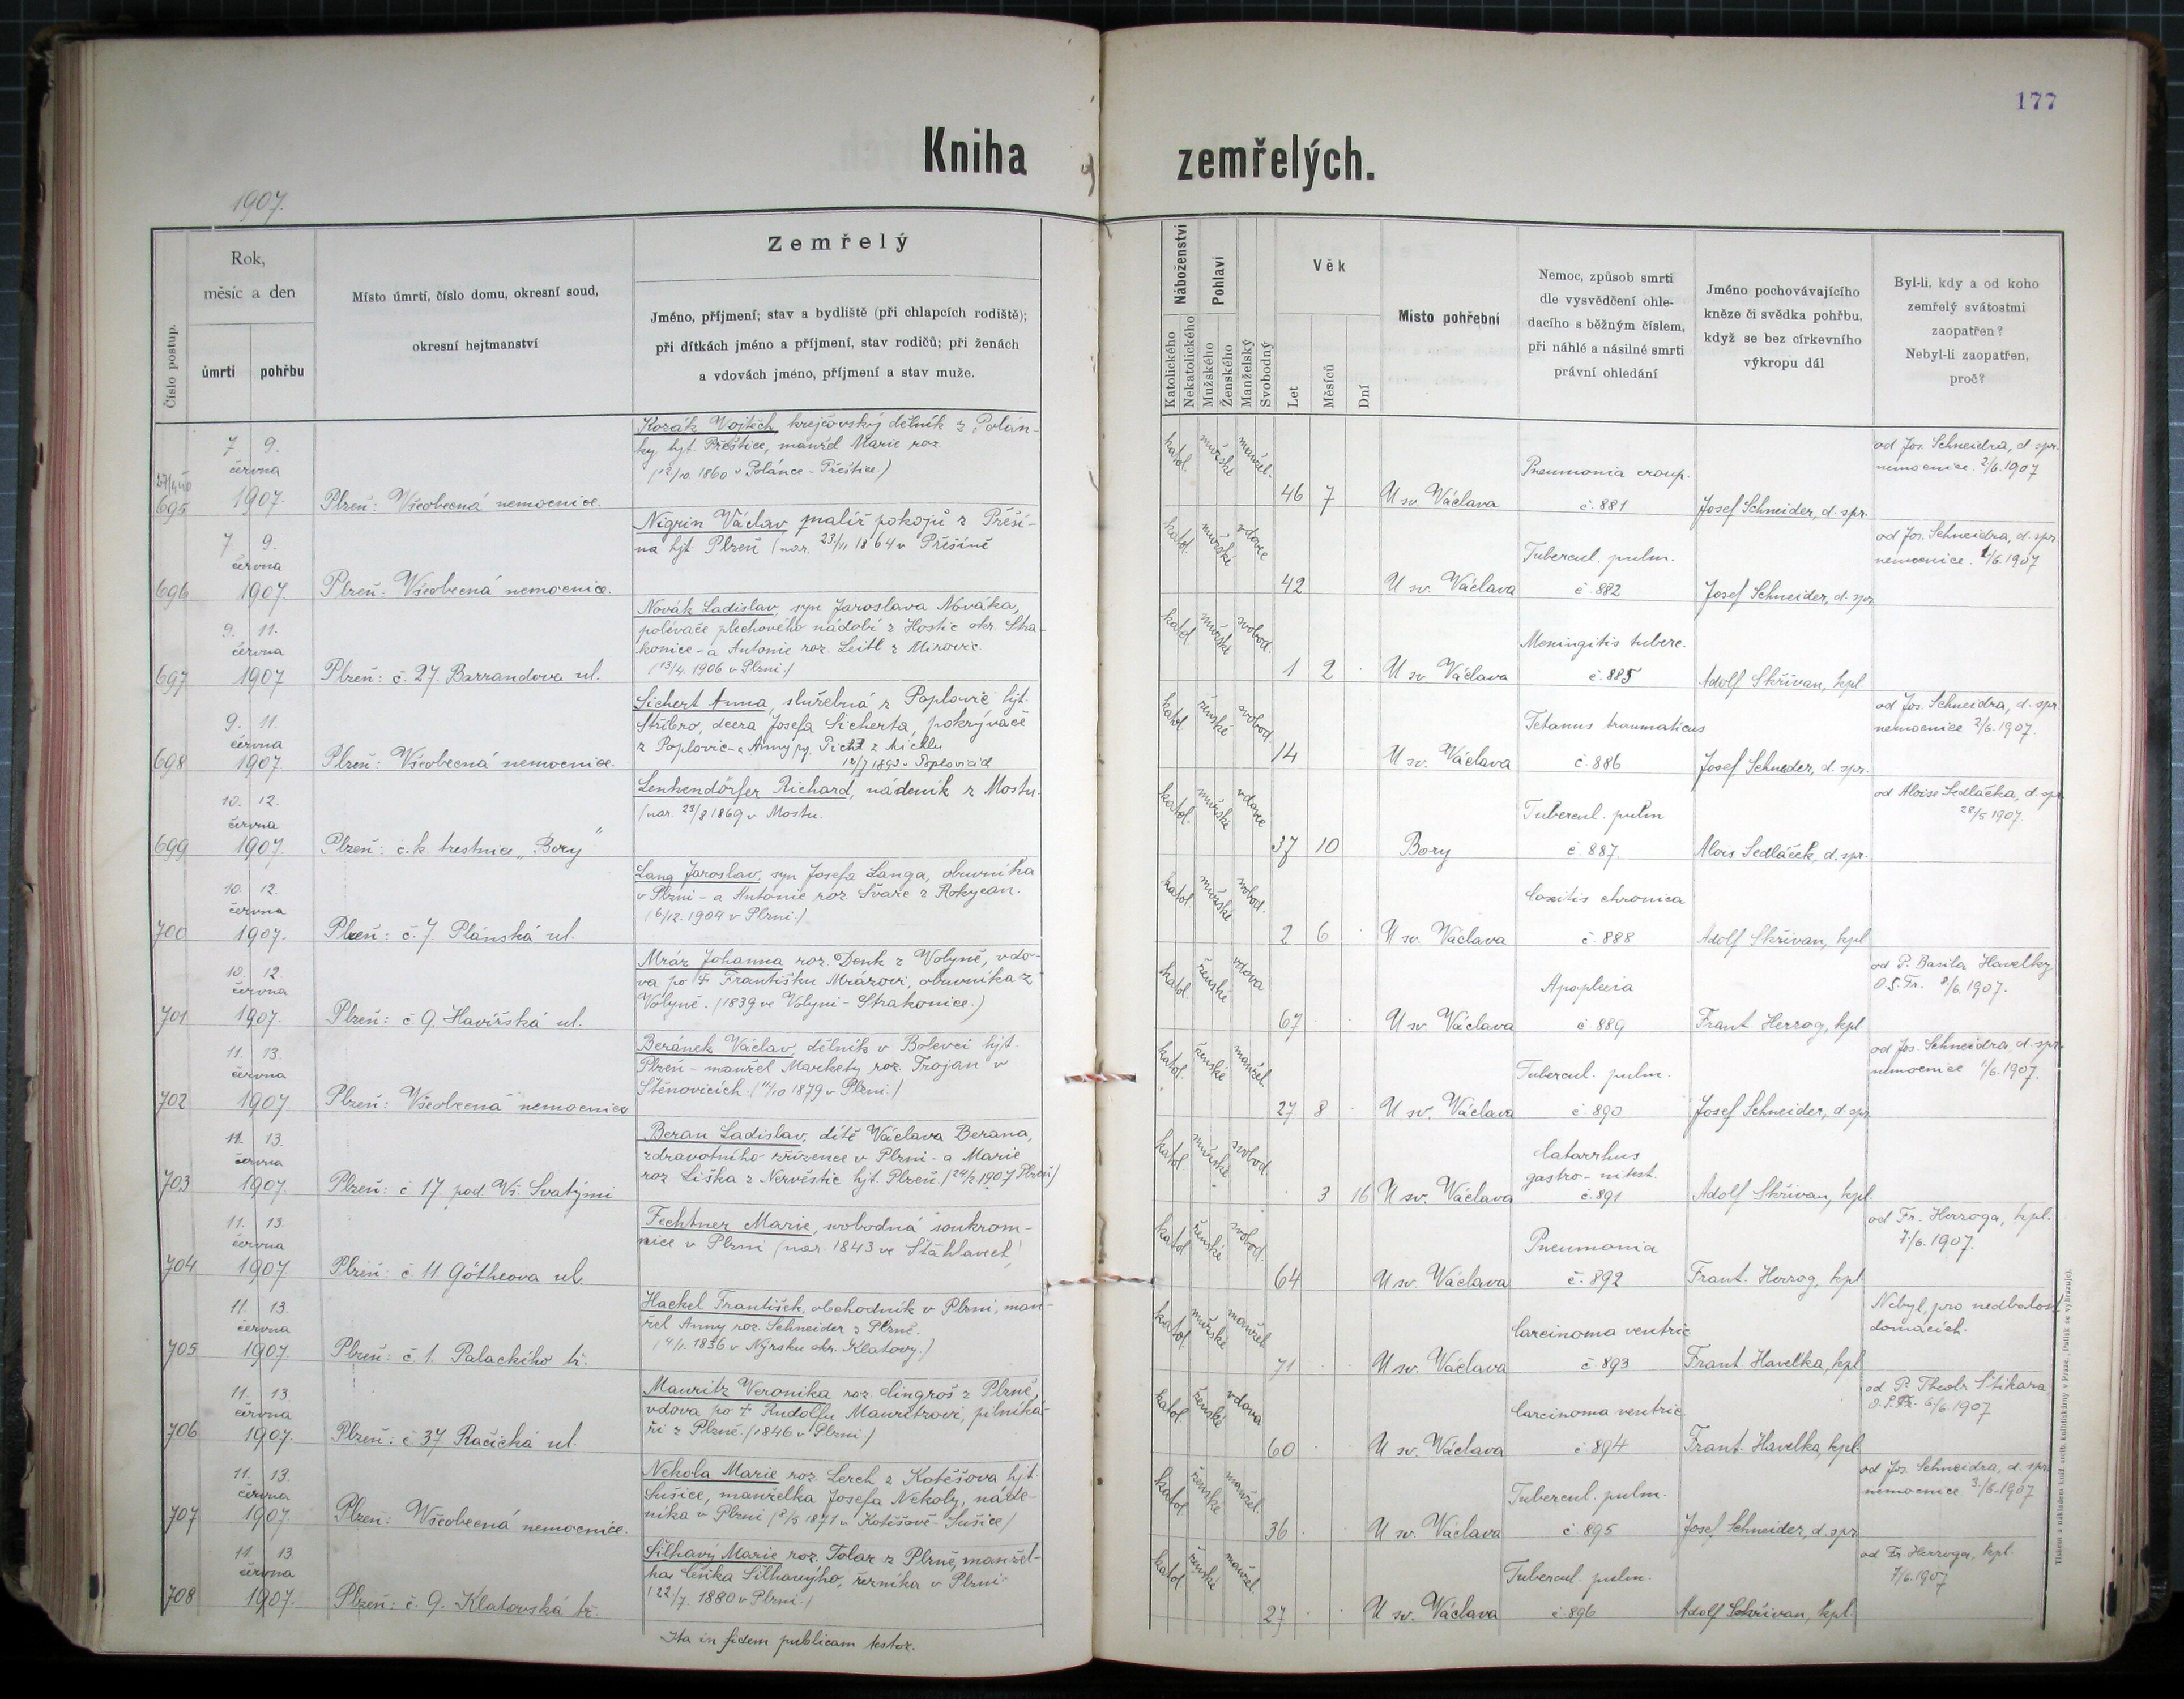 177
Kniha zemřelých.
1907.
Číslo postup.
Rok,
měsíc a den
úmrtí
pohřbu
Místo úmrtí, číslo domu, okresní soud,
okresní hejtmanství
Zemřelý
Jméno, příjmení; stav a bydliště (při chlapcích rodiště);
při dítkách jméno a příjmení, stav rodičů; při ženách
a vdovách jméno, příjmení a stav muže.
Náboženství
Katolického
Nekatolického
Pohlaví
Mužského
Ženského
Manželský
Svobodný
Věk
Let
Měsíců
Dní
Místo pohřební
Nemoc, způsob smrti
dle vysvědčení ohle-
dacího s běžným číslem,
při náhlé a násilné smrti
právní ohledání
Jméno pochovávajícího
kněze či svědka pohřbu,
když se bez církevního
výkropu dál
Byl-li, kdy a od koho
zemřelý svátostmi
zaopatřen?
Nebyl-li zaopatřen,
proč?
695
7. 9.
června
1907.
Plzeň: Všeobecná nemocnice.
Kozák Vojtěch, krejčovský dělník z Polán-
ky hjt. Přeštice, manžel Marie roz.
(12/10. 1860 v Polánce - Přeštice)
katol. mužské manžel.
46 7
U sv. Václava
Pneumonia croup.
č. 881
Josef Schneider, d. spr.
od Jos. Schneidra, d. spr.
nemocnice. 2/6. 1907
696
7. 9.
června
1907.
Plzeň: Všeobecná nemocnice.
Nigrin Václav malíř pokojů z Přeší-
na hjt. Plzeň (nar. 23/11 1864 v Přešíně
katol. mužské vdovec
42
U sv. Václava
Tubercul. pulm.
č. 882
Josef Schneider, d. spr
od Jos. Schneidra, d. spr.
nemocnice. 1/6. 1907
697
9. 11.
června
1907
Plzeň: č. 27. Barrandova ul.
Novák Ladislav, syn Jaroslava Nováka,
polévače plechového nádobí z Hostic okr. Stra-
konice - a Antonie roz. Leitl z Mirovic.
(13/4. 1906 v Plzni.)
katol. mužské svobod.
1 2 .
U sv. Václava
Meningitis tuberc.
č. 885
Adolf Skřivan, kpl
698
9. 11.
června
1907.
Plzeň: Všeobecná nemocnice.
Sichert Anna, služebná z Poplovic hjt.
Stříbro, dcera Josefa Sicherta, pokrývače
z Poplovic - a Anny
katol. ženské svobod.
14
U sv. Václava
Tetanus traumaticus
č. 886
Josef Schneider, d. spr.
od Jos. Schneidra, d. spr.
nemocnice 2/6. 1907.
699
10. 12.
června
1907.
Plzeň: c. k. trestnice „Bory"
Lenkendörfer Richard, nádeník z Mostu.
(nar. 23/8 1869 v Mostu.
katol. mužské vdovec
37 10
Bory
Tubercul. pulm
č. 887.
Alois Sedláček, d. spr.
od Aloise Sedláčka, d. spr
28/5 1907.
700
10. 12.
června
1907.
Plzeň: č. 7. Plánská ul.
Lang Jaroslav, syn Josefa Langa, obuvníka
v Plzni - a Antonie roz. Švarc z Rokycan.
(6/12. 1904 v Plzni.)
katol. mužské svobod.
2 6 .
U sv. Václava
Coxitis chronica
č. 888
Adolf Skřivan, kpl
701
10. 12.
června
1907.
Plzeň: č 9. Havířská ul.
Mráz Johanna roz. Denk z Volyně, vdo-
va po † Františku Mrázovi, obuvníka z
Volyně. (1839 ve Volyni - Strakonice.)
katol. ženské vdova
67 . .
U sv. Václava
Apoplexia
č 889
Frant. Herzog, kpl
od P. Basila Havelky
O. S. Fr. 8/6. 1907.
702
11. 13.
června
1907
Plzeň: Všeobecná nemocnice
Beránek Václav, dělník v Bolevci hjt.
Plzeň - manžel Markety roz. Trojan v
Štěnovicích. (11/10 1879 v Plzni.)
katol. ženské manžel.
27 8 .
U sv. Václava
Tubercul. pulm.
č. 890
Josef Schneider, d. spr
od Jos. Schneidra, d. spr.
nemocnice 1/6. 1907.
703
11. 13.
června
1907.
Plzeň: č 17 pod Vš. Svatými
Beran Ladislav, dítě Václava Berana,
zdravotního zřízence v Plzni - a Marie
roz. Liška z Nervěstic hjt. Plzeň. (24/2 1907 Plzeň)
katol. mužské svobod.
. 3 16
U sv. Václava
Catarrhus
gastro-intest.
č. 891
Adolf Skřivan, kpl.
704
11. 13.
června
1907.
Plzeň: č. 11 Götheova ul
Fechtner Marie, svobodná soukrom-
nice v Plzni (nar. 1843 ve Štáhlavech)
katol. ženské svobod.
64
U sv. Václava
Pneumonia
č. 892
Frant. Herzog, kpl
od Fr. Herzoga, kpl.
7/6. 1907.
705
11. 13.
června
1907.
Plzeň: č. 1. Palackého tř.
Hackel František, obchodník v Plzni, man-
žel Anny roz. Schneider z Plzně.
(4/1. 1836 v Nýrsku okr. Klatovy.)
katol. mužské manžel.
71 . .
U sv. Václava
Carcinoma ventric
č. 893
Frant. Havelka, kpl
Nebyl, pro nedbalost
domácích.
706
11. 13.
června
1907.
Plzeň: č 37 Račická ul.
Mauritz Veronika roz. Cingroš z Plzně,
vdova po † Rudolfu Mauritzovi, pilníká-
ři z Plzně. (1846 v Plzni.)
katol. ženské vdova
60 . .
U sv. Václava
Carcinoma ventric
č. 894
Frant. Havelka, kpl.
od P. Theob. Štikara
6/6. 1907
707
11. 13.
června
1907.
Plzeň: Všeobecná nemocnice.
Nekola Marie roz. Lerch z Kotěšova hjt.
Sušice, manželka Josefa Nekoly, náde-
níka v Plzni (8/5 1871 v Kotěšově - Sušice)
katol. ženské manžel.
36 . .
U sv. Václava
Tubercul. pulm.
č 895
Josef Schneider, d. spr
od Jos. Schneidra, d. spr.
nemocnice 3/6. 1907
708
11. 13.
června
1907.
Plzeň: č. 9. Klatovská tř.
Silhavý Marie roz. Tolar z Plzně, manžel-
ka Čeňka Silhavýho, řezníka v Plzni
(22/7. 1880 v Plzni.)
katol. ženské manžel.
27 . .
U sv. Václava
Tubercul. pulm.
č. 896
Adolf Skřivan, kpl.
od Fr. Herzoga, kpl.
7/6. 1907
Ita in fidem publicam testor.